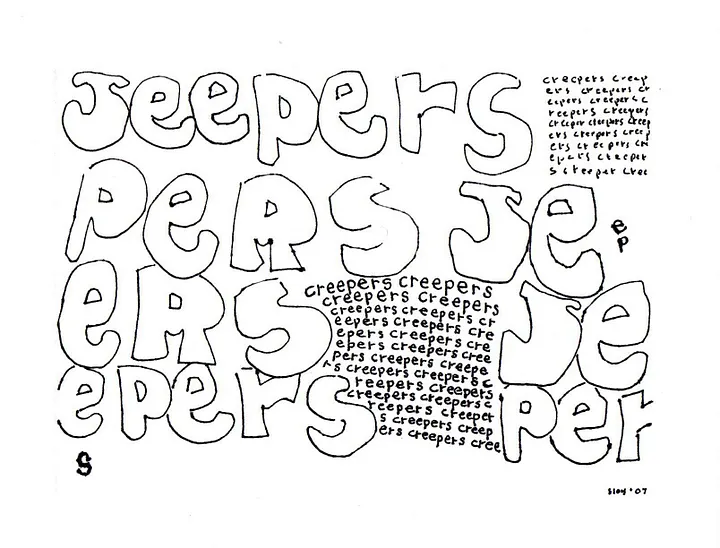 Jeepers
creepers creep
ers creepers cr
eepers creepers c
reepers creepers
creeper creepers creep
ers creepers creep
ers creepers cre
epers creeper
s creeper cree
pers Je
ep
ers
Je
creepers creepers
creepers creepers
creepers creepers cr
eepers creepers cre
epers creepers cre
epers creepers cree
pers creepers creepe
rs creepers creepers c
reepers creepers
creepers creepers c
reepers creeper
s creepers creep
ers creepers cree
epers
per
s
'07